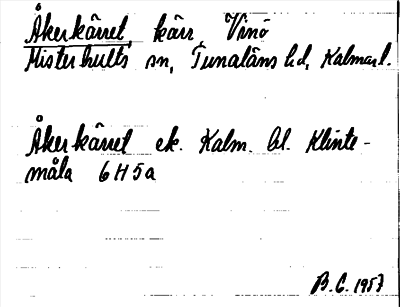 Åkerkärret, kärr, Vinö
Misterhults sn, Tunaläns hd, Kalmar l.
Åkerkärret ek. Kalm. bl. Klinte-
måla 6H5a
B.G. 1957